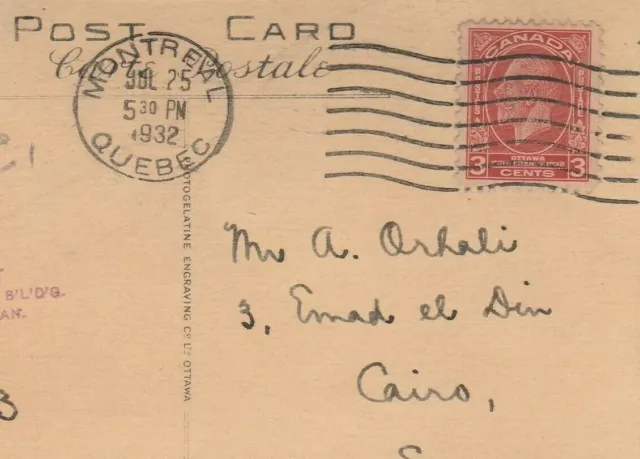 POST CARD
Carte Postale
MONTREAL
JUL 25
5 30 PM
1932
QUEBEC
CANADA
POSTAGE
3 OTTAWA 3
CENTS
PHOTOGELATINE ENGRAVING Cº LTD OTTAWA
B'L'D'G.
AN.
3
Mr A. Orhali
3, Emad el Din
Cairo,